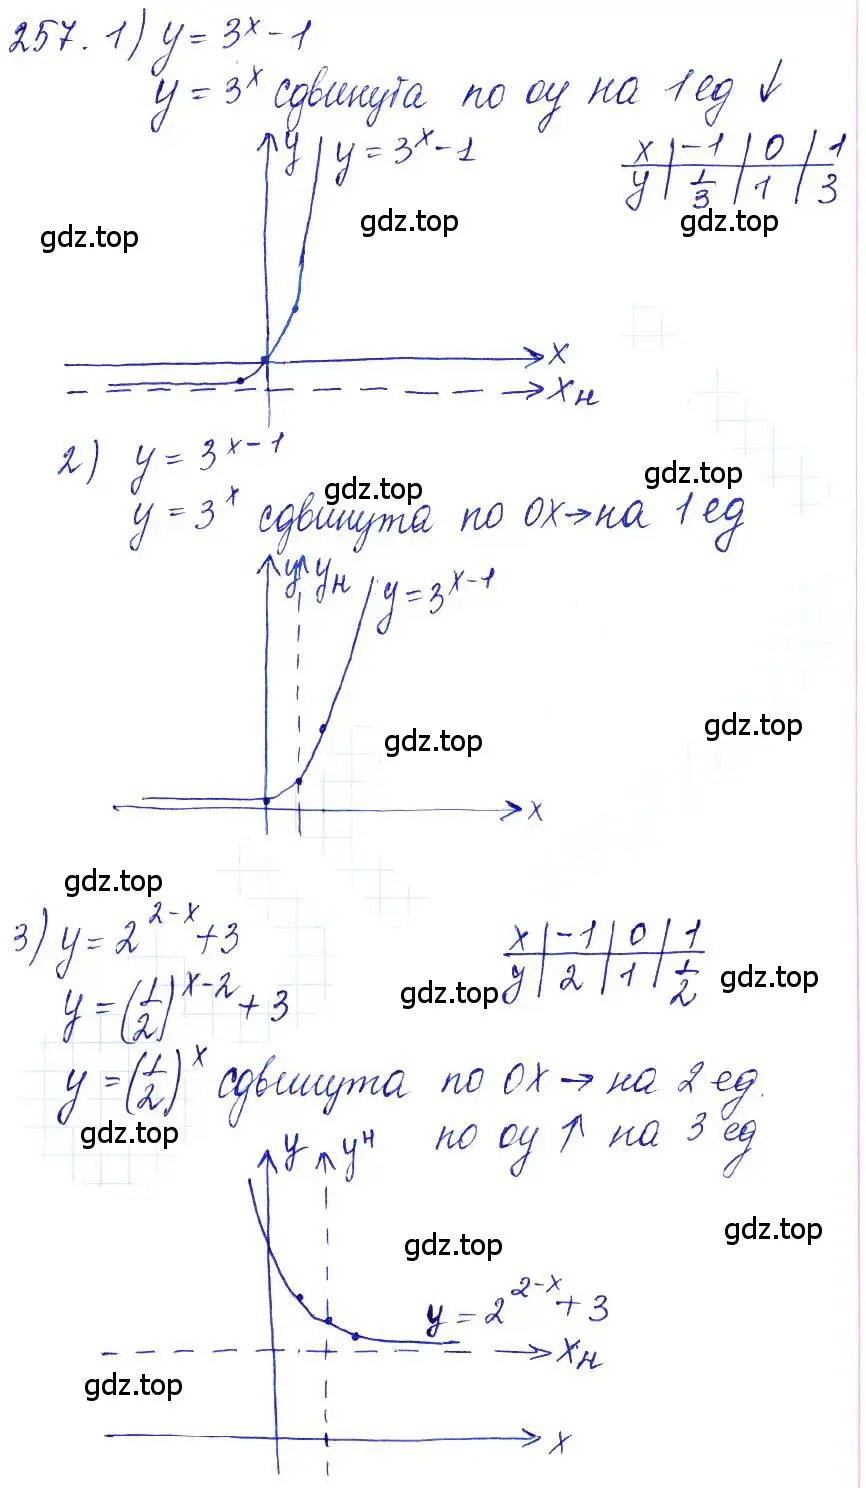 257. 1) y = 3^x - 1
y = 3^x сдвинута по оу на 1 ед ↓
y y = 3^x - 1
x | -1 | 0 | 1
y | 1/3 | 1 | 3
gdz.top gdz.top gdz.top
x
xн
2) y = 3^(x-1)
gdz.top gdz.top
y = 3^x сдвинута по ОХ → на 1 ед
y yн y = 3^(x-1)
gdz.top gdz.top
x
gdz.top
3) y = 2^(2-x) + 3
x | -1 | 0 | 1
y | 2 | 1 | 1/2
gdz.top gdz.top
y = (1/2)^(x-2) + 3
y = (1/2)^x сдвинута по ОХ → на 2 ед.
gdz.top
по оу ↑ на 3 ед
y yн
gdz.top gdz.top
y = 2^(2-x) + 3
xн
gdz.top
x